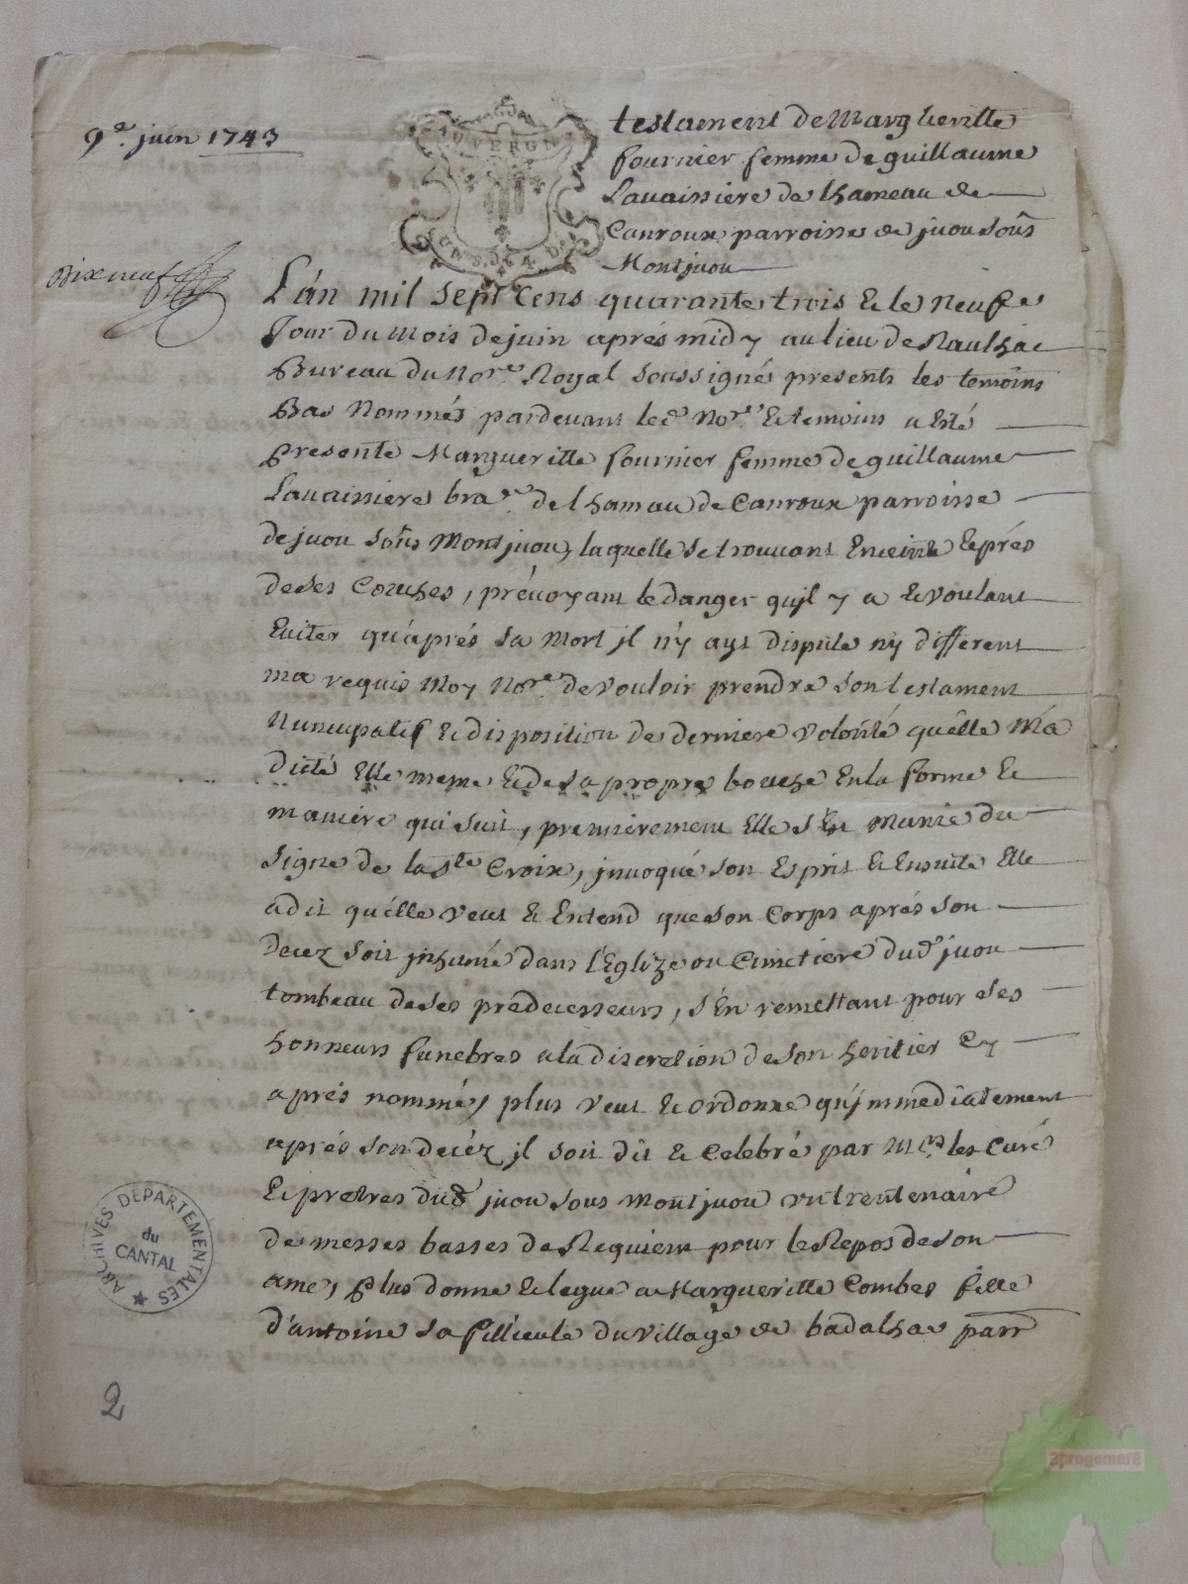 9e. juin 1743
testament de Margueritte
fournier femme de guillaume
Lavaissiere de lhameau de
Canroux parroisse de jvou sous
Montjvou
AUVERGN
Dixneuf
L'an mil sept cens quarante trois & le neufe
Jour du Mois de juin aprés midy au lieu de Raulhac
Bureau du Nore. Royal soussignés presents les temoins
Bas Nommés pardevant led. Nore. & temoins a Esté
presente Margueritte fournier femme de guillaume
Lavaissiere bra.re de lhamau de Canroux parroisse
de jvou sous Montjvou, laquelle se trouvant Enceinte & prés
de ses Couches, prévoyant le danger qujl y a & voulant
Eviter qu'aprés sa mort jl n'y ayt dispute ny different
ma requis Moy Nore. de vouloir prendre son testament
Nuncupatif & disposition de derniere volonté quélle M'a
dicté Elle meme & de sa propre bouche En la forme &
maniere qui suit, premierement Elle s'Est Munie du
signe de la Ste Croix, jnvoqué son Esprit & Ensuite Elle
a dit quélle veut & Entend que son Corps aprés son
decez soit jnhumé dans l'Eglize ou Cimetiere dud. jvou
tombeau de ses predecesseurs, s'En remettant pour ses
honneurs funebres a la discretion de son heritier Cy
aprés nommé, plus veut & ordonne qu'jmmediatement
aprés son decéz jl soit dit & Celebré par Mrs. les Curé
& pretres dud. jvou sous Montjvou un trentenaire
de messes basses de Requiem pour le Repos de son
ame, plus donne & legue a Margueritte Combes fille
d'antoine sa fillieule du village de badalhac parr
ARCHIVES DEPARTEMENTALES
du
CANTAL
2